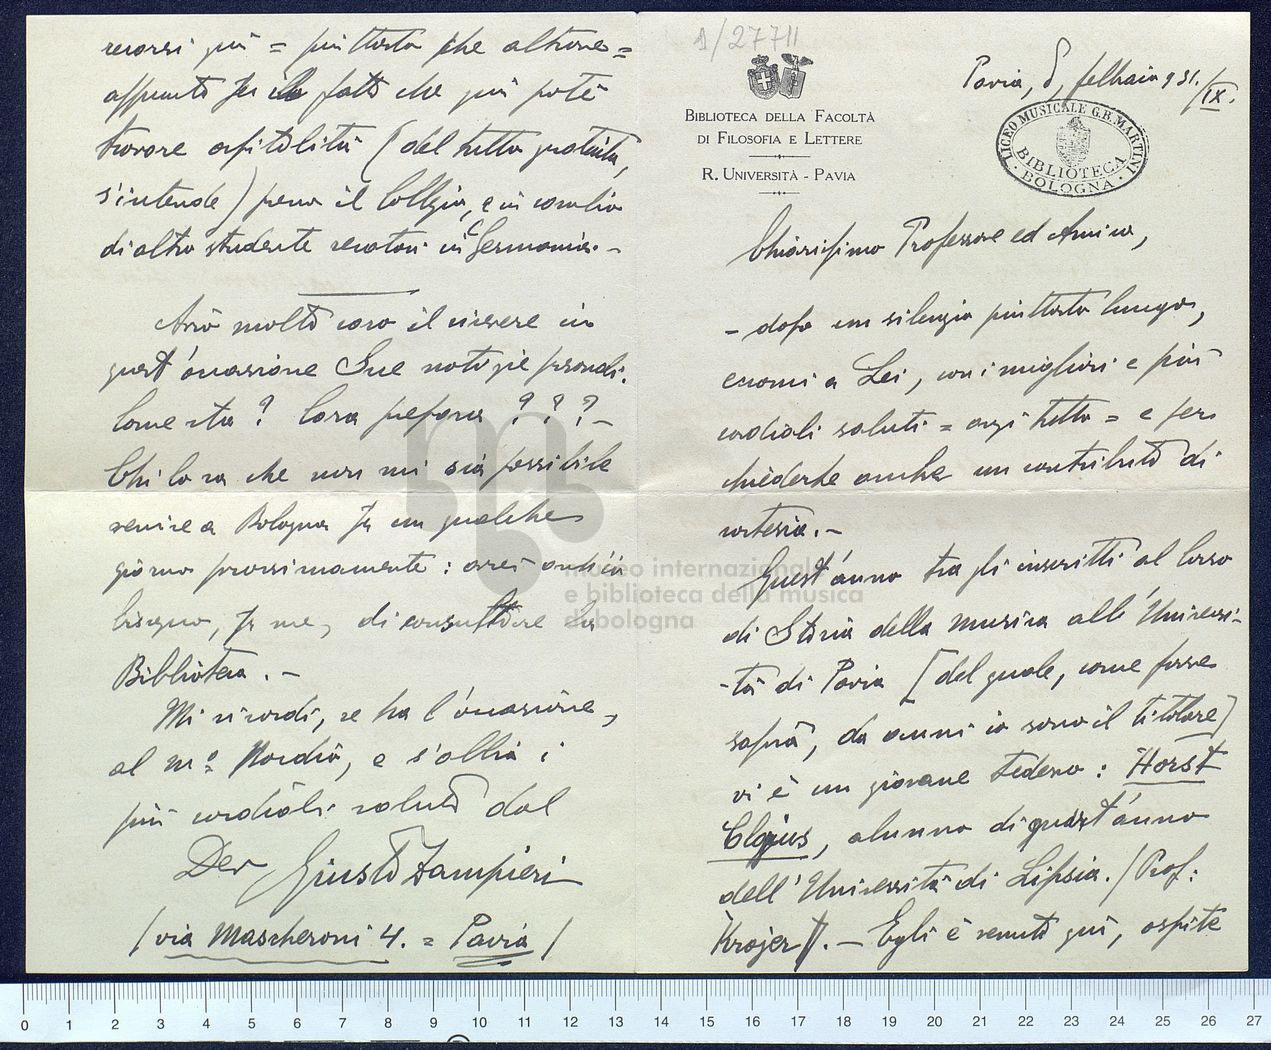 1/27711
BIBLIOTECA DELLA FACOLTÀ
DI FILOSOFIA E LETTERE
R. UNIVERSITÀ - PAVIA
Pavia, 8, febbraio 931./IX.
LICEO MUSICALE G.B. MARTINI
BIBLIOTECA
BOLOGNA
Chiarissimo Professore ed Amico,
- dopo un silenzio piuttosto lungo,
eccomi a Lei, con i migliori e più
cordiali saluti = anzi tutto = e per
chiederle anche un contributo di
cortesia. -
Quest'anno tra gli inscritti al Corso
di Storia della musica all'Universi-
-tà di Pavia [del quale, come forse
saprà, da anni io sono il titolare]
vi è un giovane tedesco: Horst
alunno di quest'anno
dell'Università di Lipsia. (Prof:
Krojer). - Egli è venuto quì, ospite
recarsi quì = piuttosto che altrove =
appunto per il fatto che quì potè
trovare ospitalità (del tutto gratuita,
s'intende) presso il Collegio, e in cambio
di altro studente recatosi in Germania. -
Avrò molto caro il ricevere in
quest'occasione Sue notizie personali.
Come sta? Cosa prepara ??? -
Chi lo sa che non mi sia possibile
venire a Bologna per un qualche
giorno prossimamente: avrei anch'io
bisogno, per me, di consultare la
Biblioteca. -
Mi ricordi, se ha l'occasione,
al m° Nordio, e s'abbia i
più cordiali saluti dal
Dev Giusto Zampieri
(via Mascheroni 4. = Pavia)
museo internazionale
e biblioteca della musica
di bologna
0 1 2 3 4 5 6 7 8 9 10 11 12 13 14 15 16 17 18 19 20 21 22 23 24 25 26 27